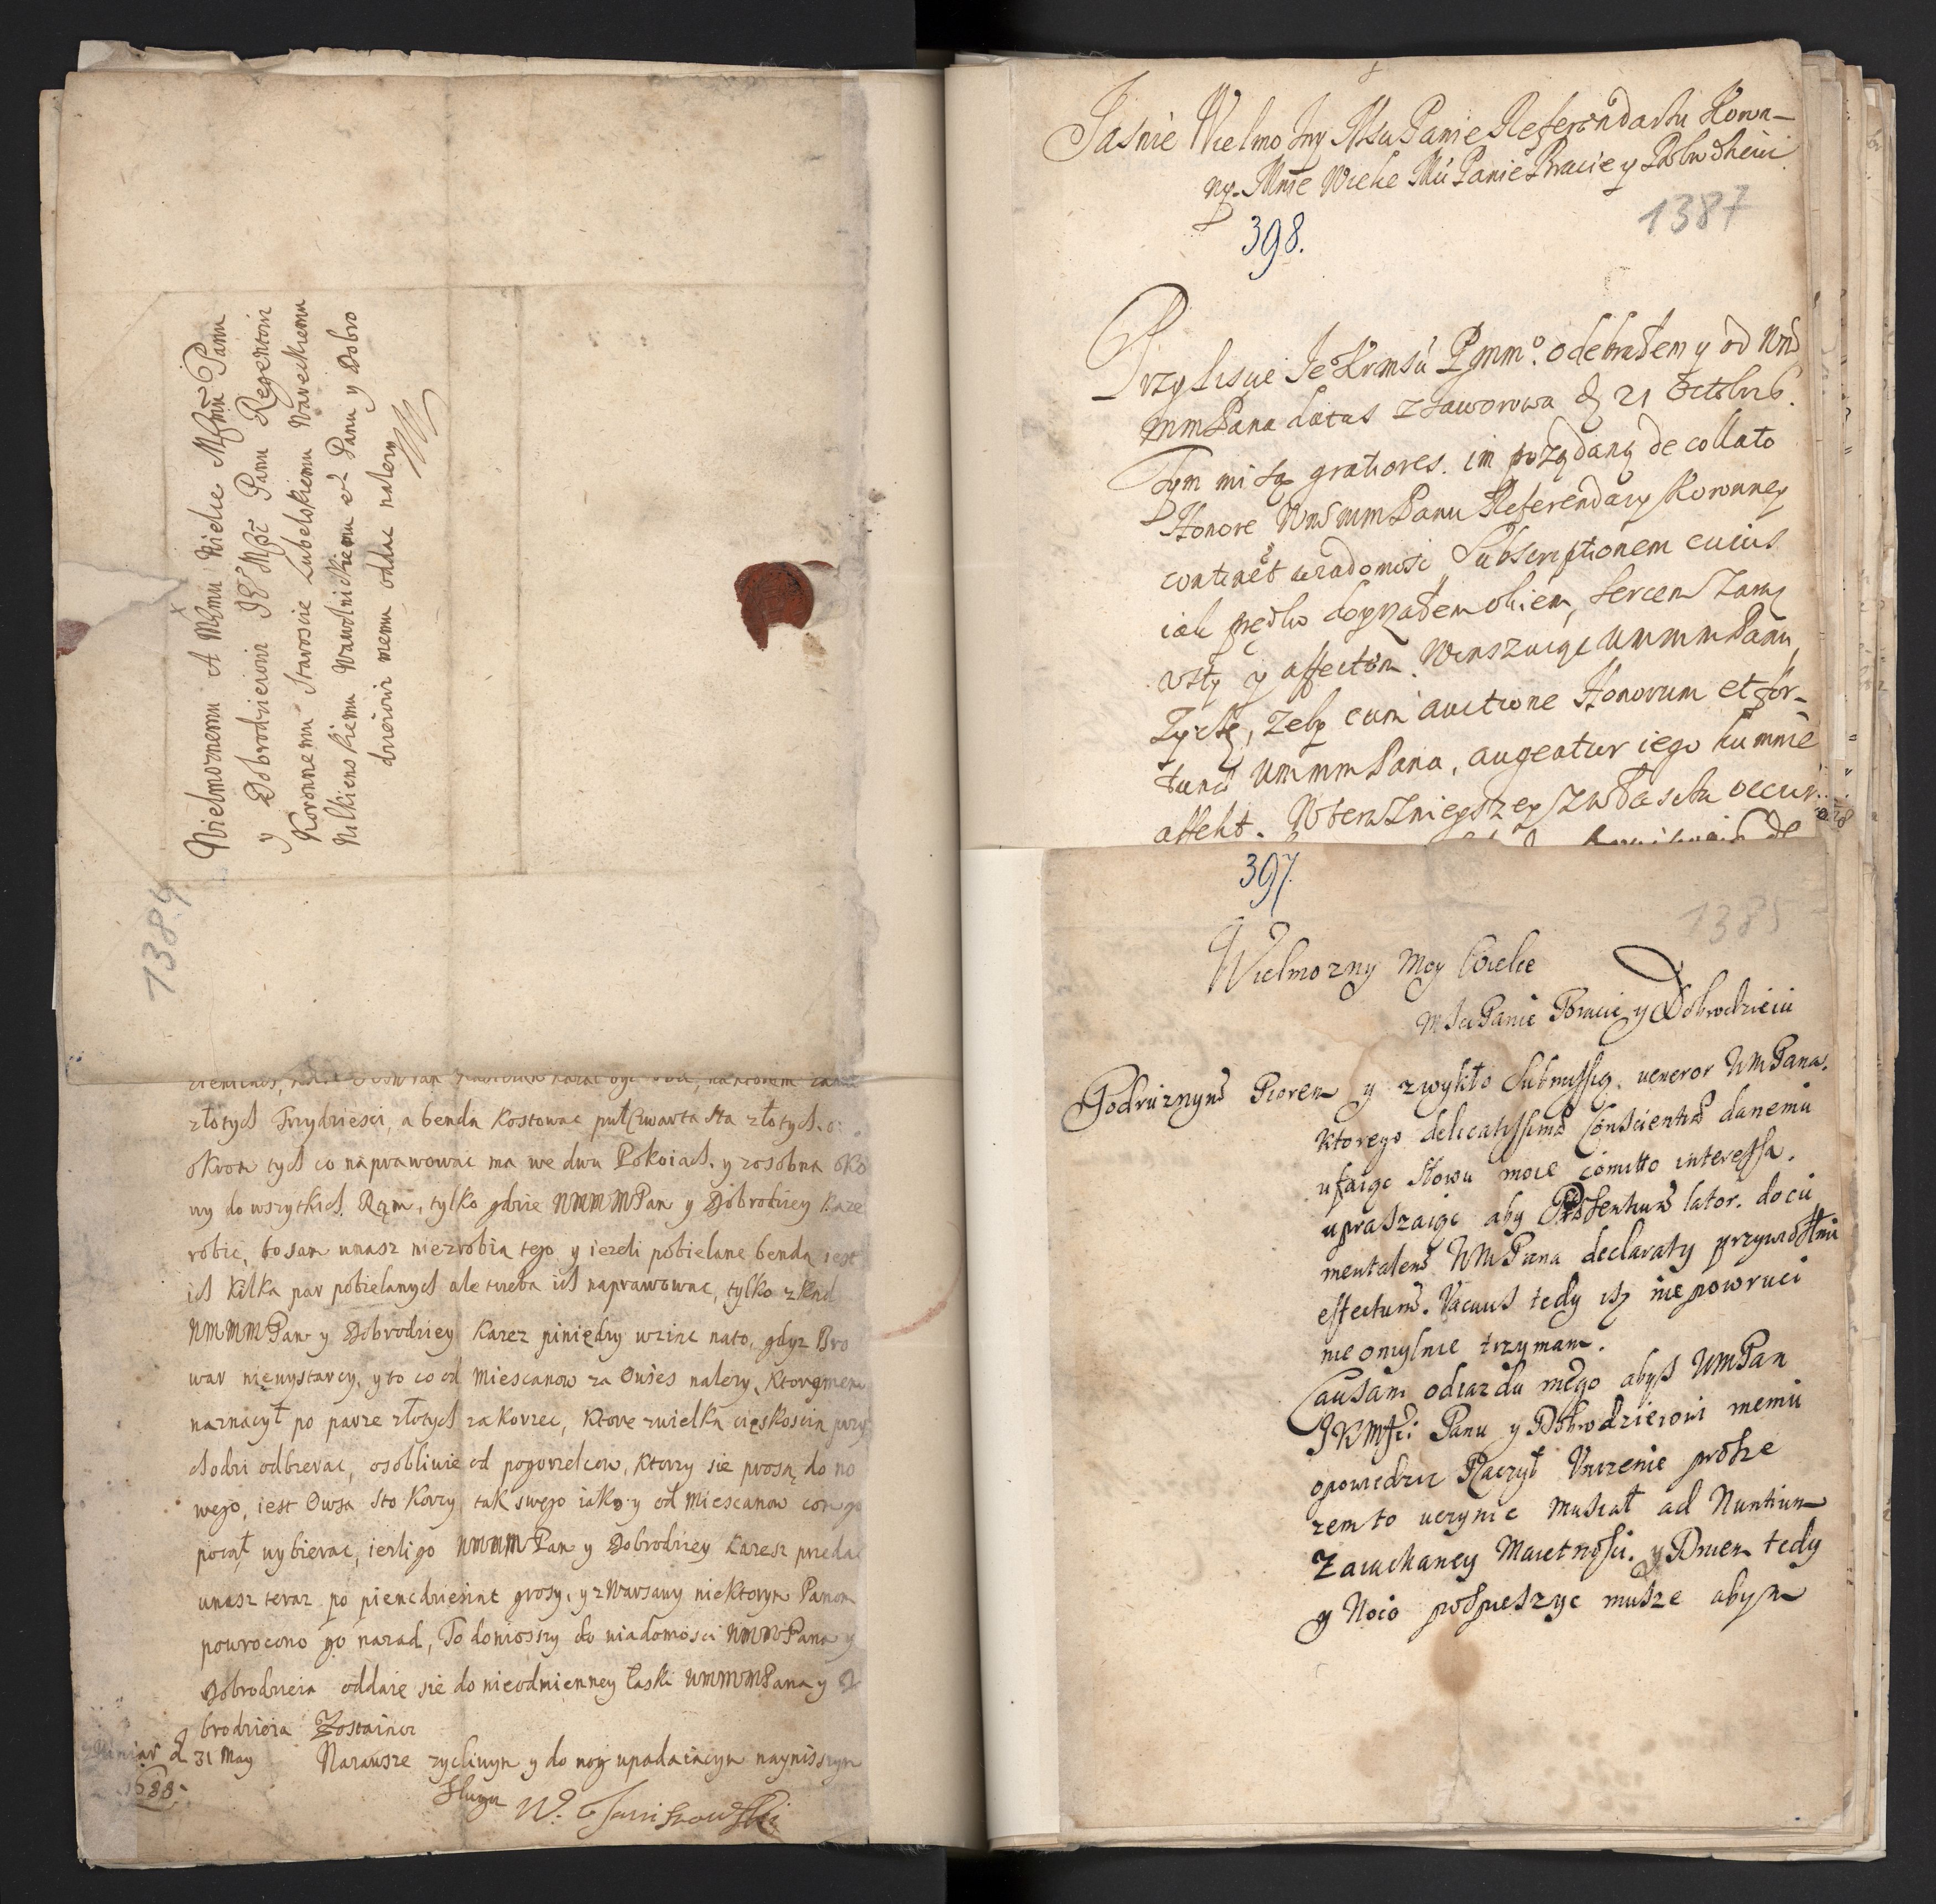 Wielmoznemu A Mḿu Wielce Mḿu Panu
y Dobrodzieiowi JE Mści Panu Regentowi
Koronnemu Staroscie Lubelskiemu Wareckiemu
Wilkienskiemu Wawolnickiemu etc Panu y Dobro
dzieiowi memu oddac nalezy
1384
złotych Trzydziesci, a benda Kostowac puł Czwarta sta złotych
okrom tych co naprawowac ma we dwu Pokoiach. y zosobna oko
ny do wszytkich Ram, tylko gdzie WMMMPan y Dobrodziey Kaze
robic, bo sam unasz niezrobia tego y iezeli pobielane benda iest
ich kilka par pobielanych ale trzeba ich naprawowac, tylko zkad
WMMMPan y Dobrodziey Karez piniędzy wziac nato, gdyz Bro
war niewystarcy, y to co od Miescanow za Owies nalezy, Ktorym em
naznacył po parze złotych za korzec, Ktore zwielka cięskoscia przy
chodzi odbierac, osobliwie od pogorzelcow, Ktorzy sie proszą do no
wego, iest Owsa sto Korcy tak swego iako y od Miescanow com go
począł wybierac, iezli go WMMMPan y Dobrodziey Karesz przedac
unasz teraz po piencdziesiat grosy, y z Warsawy niektorym Panom
powrocono go nazad, To doniossy do wiadomosci WMMMPana y
Dobrodzieia oddaię się do nieodmienney łaski WMMMPana y Do
brodzieia Zostaiac
d 31 May Nazawsze zycliwym y do nog upadaiacym nayniszym
1688. Slugu W. Janiszowski
Jasnie Wielmozny Msu Panie Referendarzu Koron-
ny. Mnie Wielce Mu Panie Bracie y Dobrodzieiu
1387
398.
Przy Liscie Je Krmsci Pmmo. odebrałem y od Wm
mmPana datus z Jaworowa d 21 Octobris.
Tym mi są gratiores. im pożądaną de collato
Honore WmmmPanu Referendary Koronney
continet wiadomosc, Subscriptionem cuius
iak prętko doyrzałem okiem, sercem zaraz
y affectem. Winszuiąc WmmmPanu,
życzę, zeby cum auctione Honorum et for-
tunae WmmmPana, augeatur iego ku mnie
affekt. Wteraznieyszey zwłaszcza occur
397.
1385
Wielmozny Moy Wielce
MSu Panie Bracie y Dobrodzieiu
Podruznym Piorem y zwykło submissią veneror WMPana.
Ktorego delicatissima Conscientia danemu
ufaiąc słowu moie comitto interessa.
upraszaiąc aby Praesentium lator. docu
mentalem WMPana declaraty przywiosł mi
effectum. Vacuus tedy isz nie powroci
nie omylnie trzymam.
Causam odiazdu mego abys WMPan
JKMści Panu y Dobrodzieiowi memu
opowiedziec Raczył Unizenie prosze
zem to uczynic musiał ad Nuntium
Zaiachaney Maietności. y Dniem tedy
y Noco pospieszyc musze abym